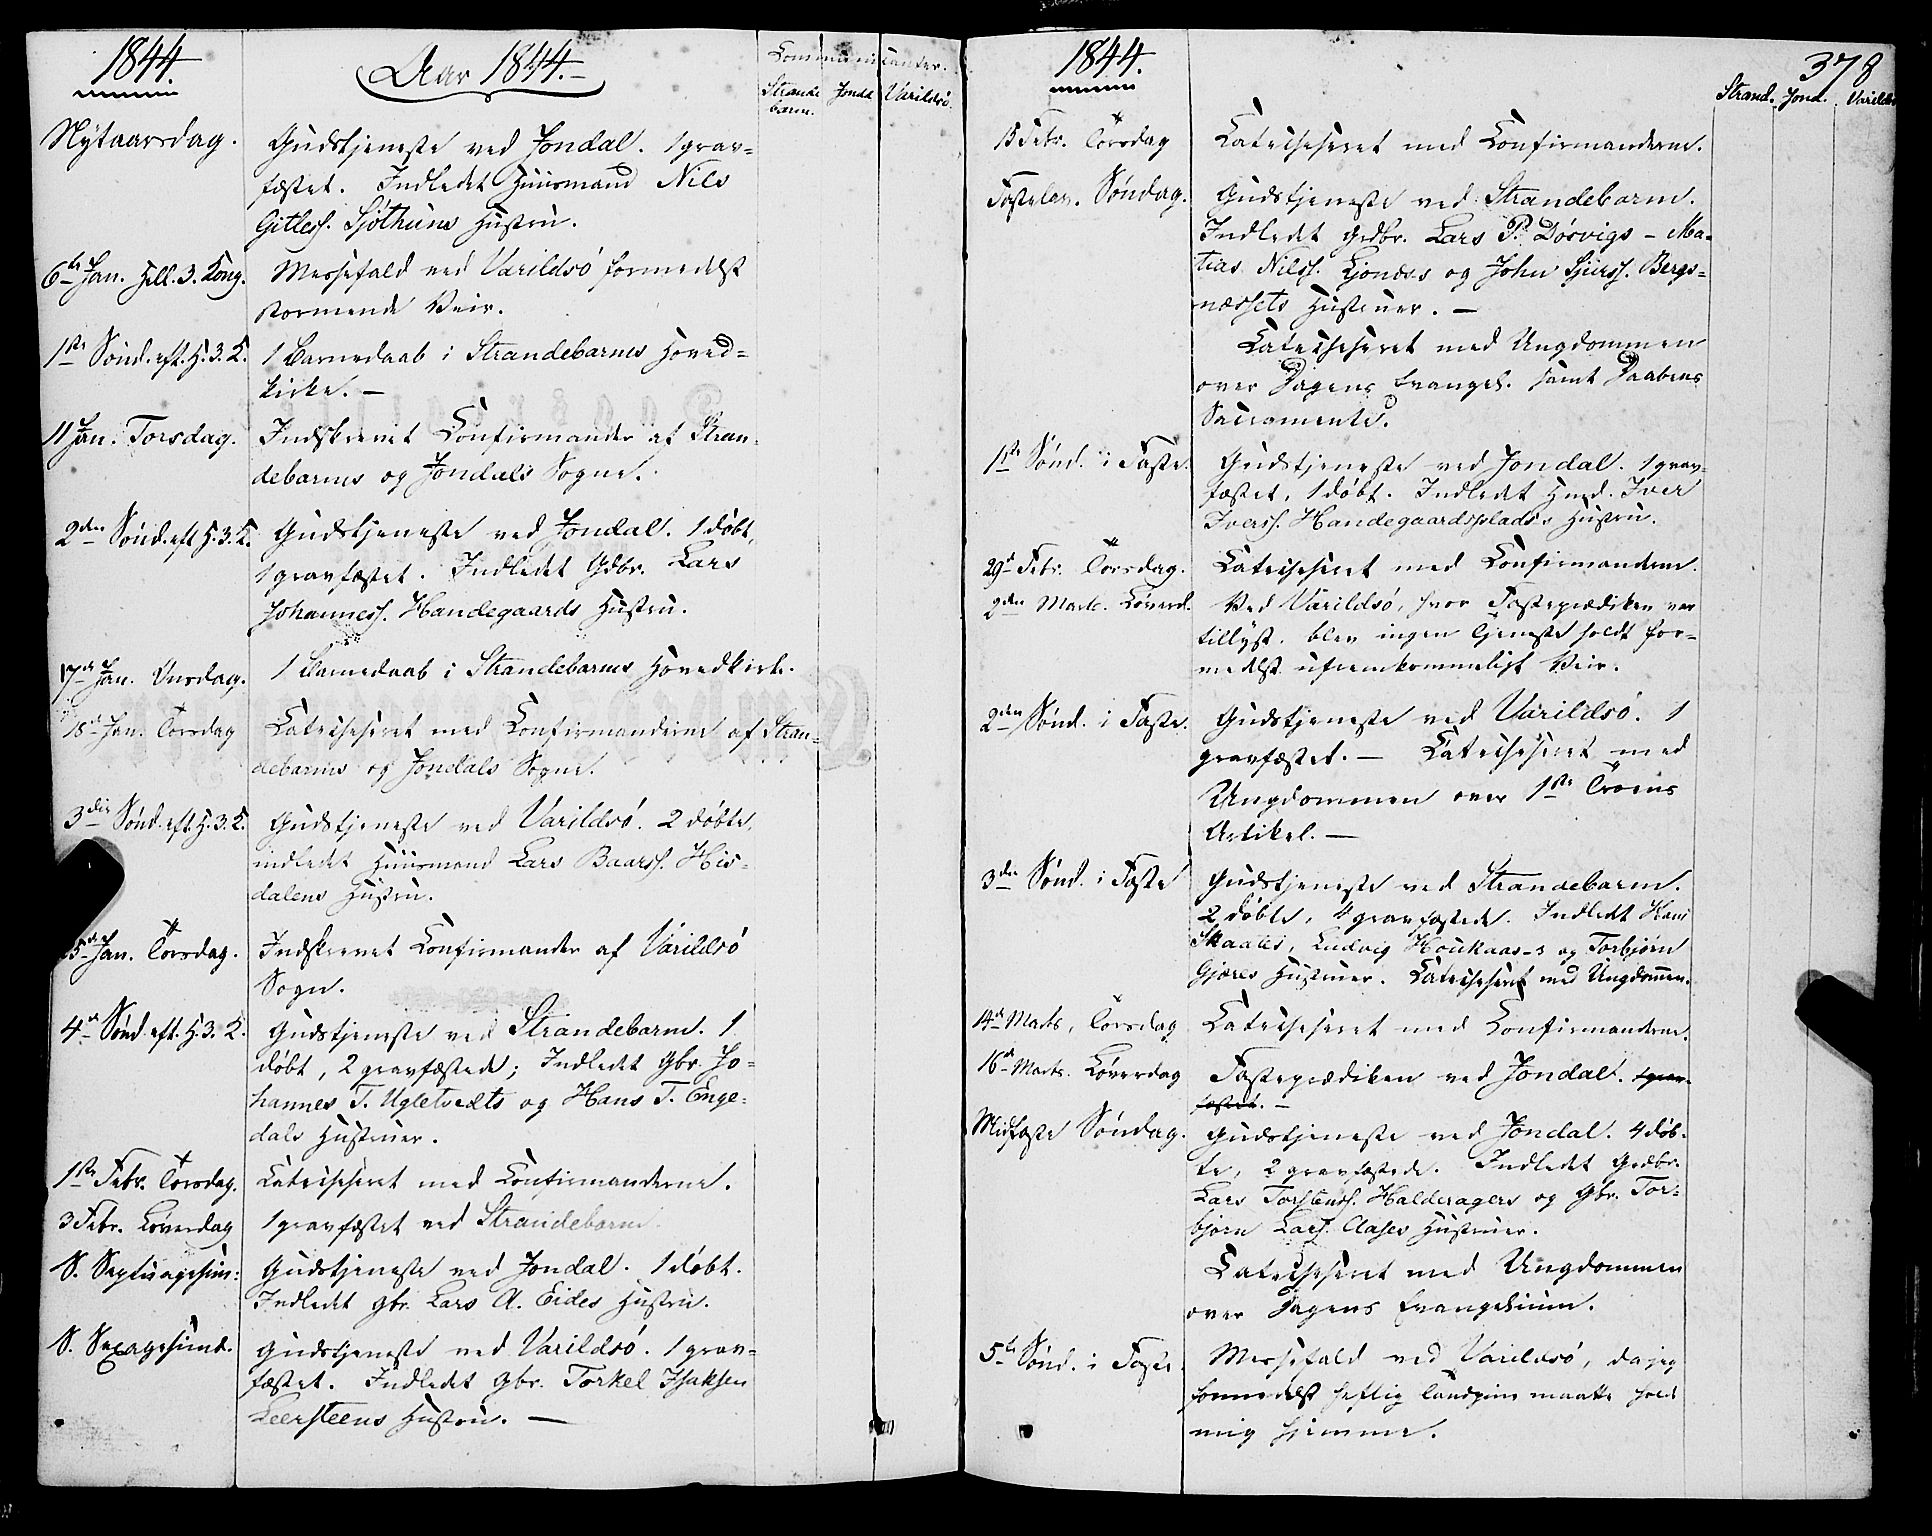 1844.
Aar 1844.
Communicanter.
Strande Jond. Varildsö.
barm.
Nytaarsdag.
Gudstjeneste ved Jondal. 1 grav-
fæstet. Indledet Huusmand Nils
Gitless. Sjöthuns Hustru.
6te Jan. Hell. 3. Kong.
Messefald ved Varildsö formedelst
stormende Veir.
1ste Sönd. eft. H. 3. K.
1 Barnedaab i Strandebarms Hoved-
kirke. —
11 Jan. Torsdag.
Indskrevet Confirmander af Stran-
debarms og Jondals Sogne.
2den Sönd. eft H. 3. K.
Gudstjeneste ved Jondal. 1 döbt,
1 gravfæstet. Indledet Gdbr. Lars
Johanness. Handegaards Hustru.
17de Jan. Onsdag.
1 Barnedaab i Strandebarms Hovedkirke.
18de Jan. Torsdag
Catechiseret med Confirmanderne af Stran-
debarms og Jondals Sogne.
3die Sönd. eft. H. 3. K.
Gudstjeneste ved Varildsö. 2 döbte,
indledet Huusmand Lars Baarss. His-
dalens Hustru.
25de Jan. Torsdag.
Indskrevet Confirmander af Varildsö
Sogn.
4de Sönd. eft. H. 3. K.
Gudstjeneste ved Strandebarm. 1
döbt, 2 gravfæstede; Indledet Gbr. Jo-
hannes T. Ugletvedts og Hans T. Enge-
dals Hustruer.
1ste Febr. Torsdag.
Catechiseret med Confirmanderne.
3 Febr. Löverdag
1 gravfæstet ved Strandebarm.
S. Septuagesim:
Gudstjeneste ved Jondal. 1 döbt.
Indledet Gbr. Lars A. Eides Hustru.
S. Sexagesima.
Gudstjeneste ved Varildsö. 1 grav-
fæstet. Indledet Gbr. Torkel Isaksen
Leersteens Hustru. —
1844.
378
Strand. Jond. Varilds
15 Febr. Torsdag
Catechiseret med Confirmanderne.
Fastelav. Söndag.
Gudstjeneste ved Strandebarm.
Indledet Grdbr. Lars P. Dörvigs - Ma-
tias Nilss. Ljonæs og John Sjurss. Bergs-
næssets Hustruer. —
Catechiseret med Ungdommen
over Dagens Evangel. samt Daabens
Sacramente.
1ste Sönd. i Faste.
Gudstjeneste ved Jondal. 1 grav-
fæstet, 1 döbt. Indledet Hmd. Iver
Iverss. Handegaardsplads's Hustru.
29de Febr. Torsdag.
Catechiseret med Confirmanderne.
2den Marts. Löverd.
Ved Varildsö, hvor Fasteprædiken var
tillyst, blev ingen Tjeneste holdt for-
medelst ufremkommeligt Veir.
2den Sönd. i Faste.
Gudstjeneste ved Varildsö. 1
gravfæstet. — Catechiseret med
Ungdommen over 1ste Troens
Artikel. —
3die Sönd. i Faste
Gudstjeneste ved Strandebarm.
2 döbte, 4 gravfæstede. Indledet Hans
Skaales, Ludvig Houkaas-s og Torbjörn
Gjæres Hustruer. Catechiseret med Ungdommen.
14de Marts, Torsdag
Catechiseret med Confirmanderne.
16de Marts. Löverdag
Fasteprædiken ved Jondal. 1 grav-
fæstet. —
Midfaste Söndag.
Gudstjeneste ved Jondal. 4 döb-
te, 2 gravfæstede. Indledet Grdbr.
Lars Torstenss. Halderagers og Gbr. Tor-
björn Larss. Aases Hustruer.
Catechiseret med Ungdommen
over Dagens Evangelium.
5te Sönd. i Faste.
Messefald ved Varildsö, da jeg
formedelst heftig Tandpine maatte holde
mig hjemme.